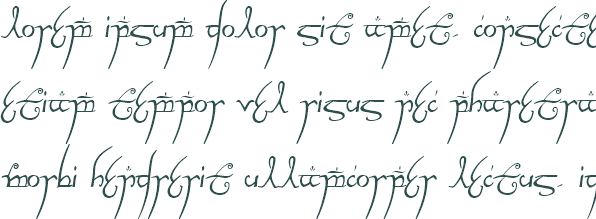 lorem ipsum dolor sit amet. consecte
etiam tempor vel risus nec pharetra
morbi hendrerit ullamcorper lectus. id